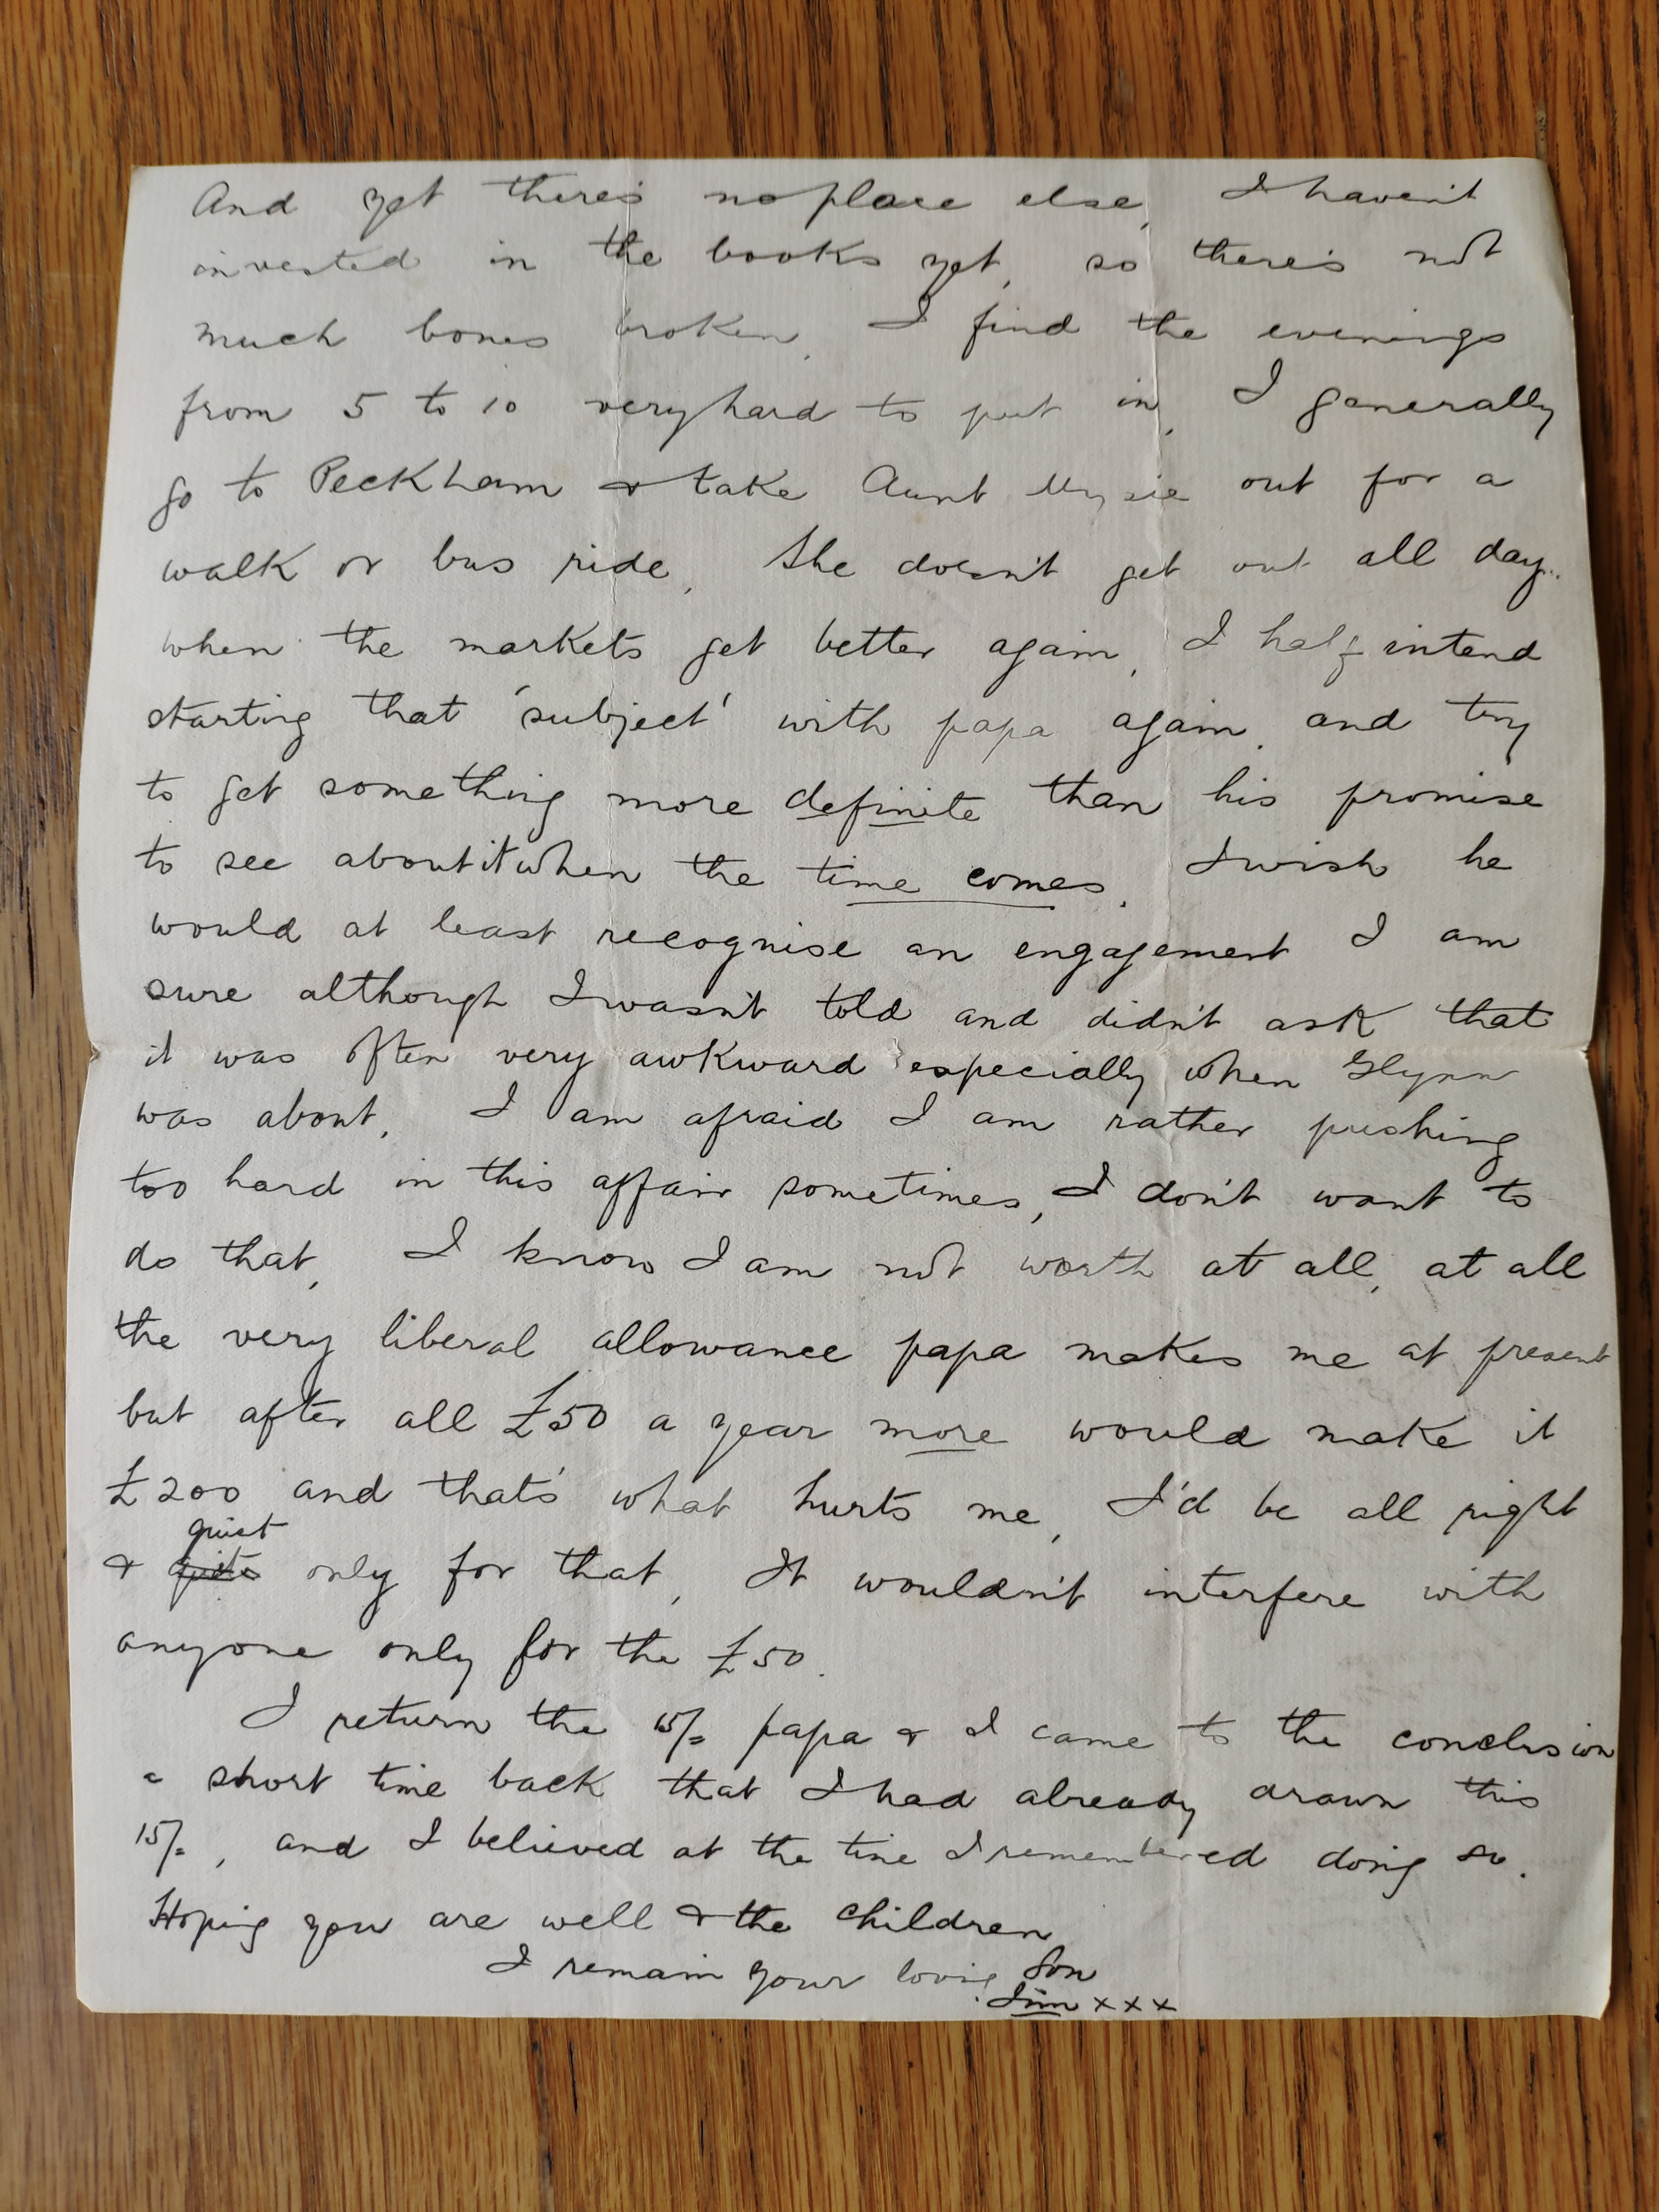 And yet there's no place else, I haven't
invested in the books yet, so there's not
much bones broken. I find the evenings
from 5 to 10 very hard to put in, I generally
go to Peckham & take Aunt Mysie out for a
walk or bus ride, She doesn't get out all day..
when the markets get better again, I half intend
starting that 'subject' with papa again, and try
to get something more definite than his promise
to see about it when the time comes. I wish he
would at least recognise an engagement I am
sure although I wasn't told and didn't ask that
it was often very awkward especially when Glynn
was about. I am afraid I am rather pushing
too hard in this affair sometimes, I don't want to
do that, I know I am not worth at all, at all
the very liberal allowance papa makes me at present
but after all £50 a year more would make it
£200 and that's what hurts me, I'd be all right
quiet
& quite only for that, It wouldn't interfere with
anyone only for the £50.
I return the 15/= papa & I came to the conclusion
a short time back that I had already drawn this
15/=, and I believed at the time I remembered doing so.
Hoping you are well & the children
I remain your loving Son
Jim x x x